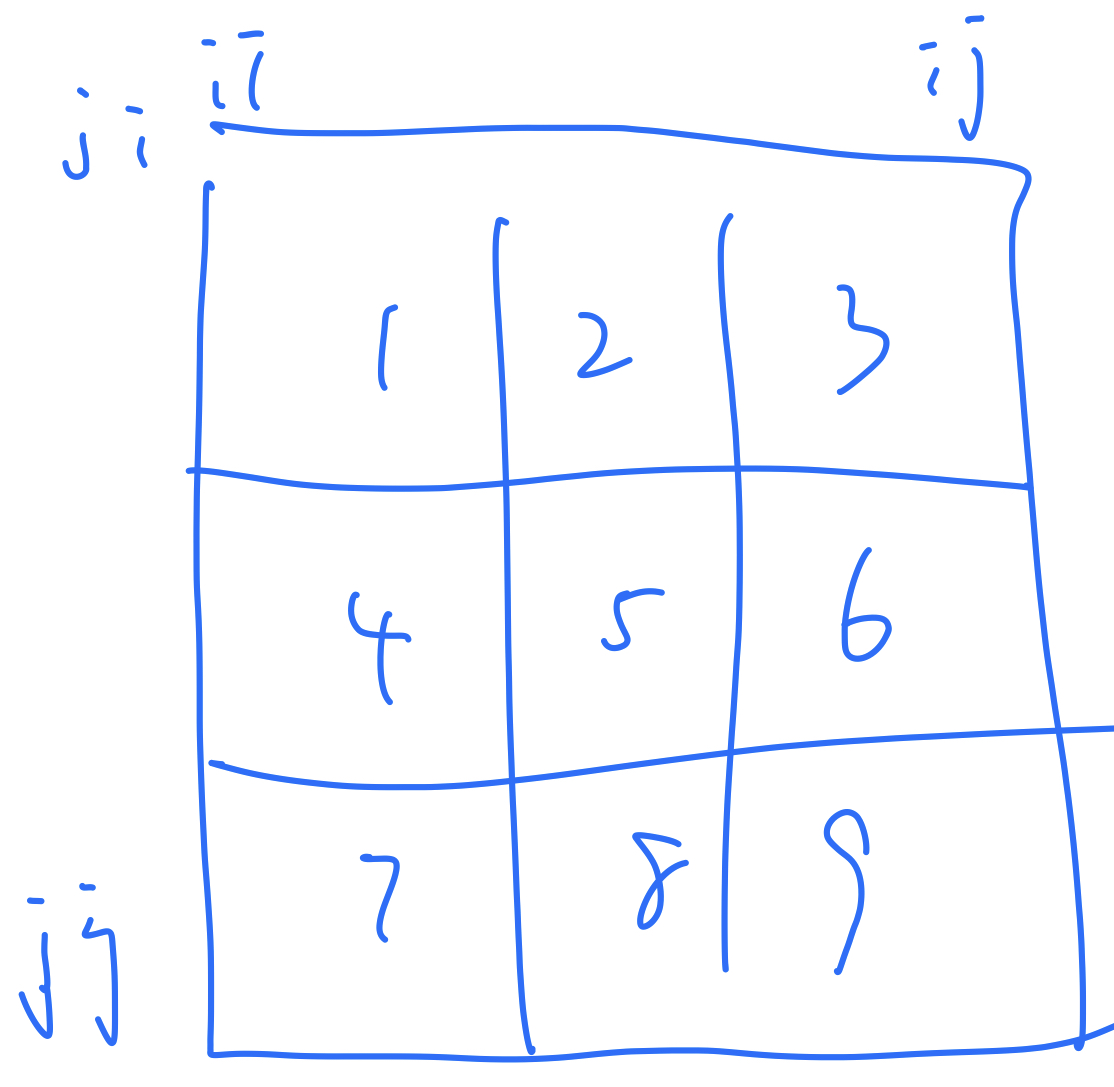 ii ij
ji
1 2 3
4 5 6
7 8 9
jj